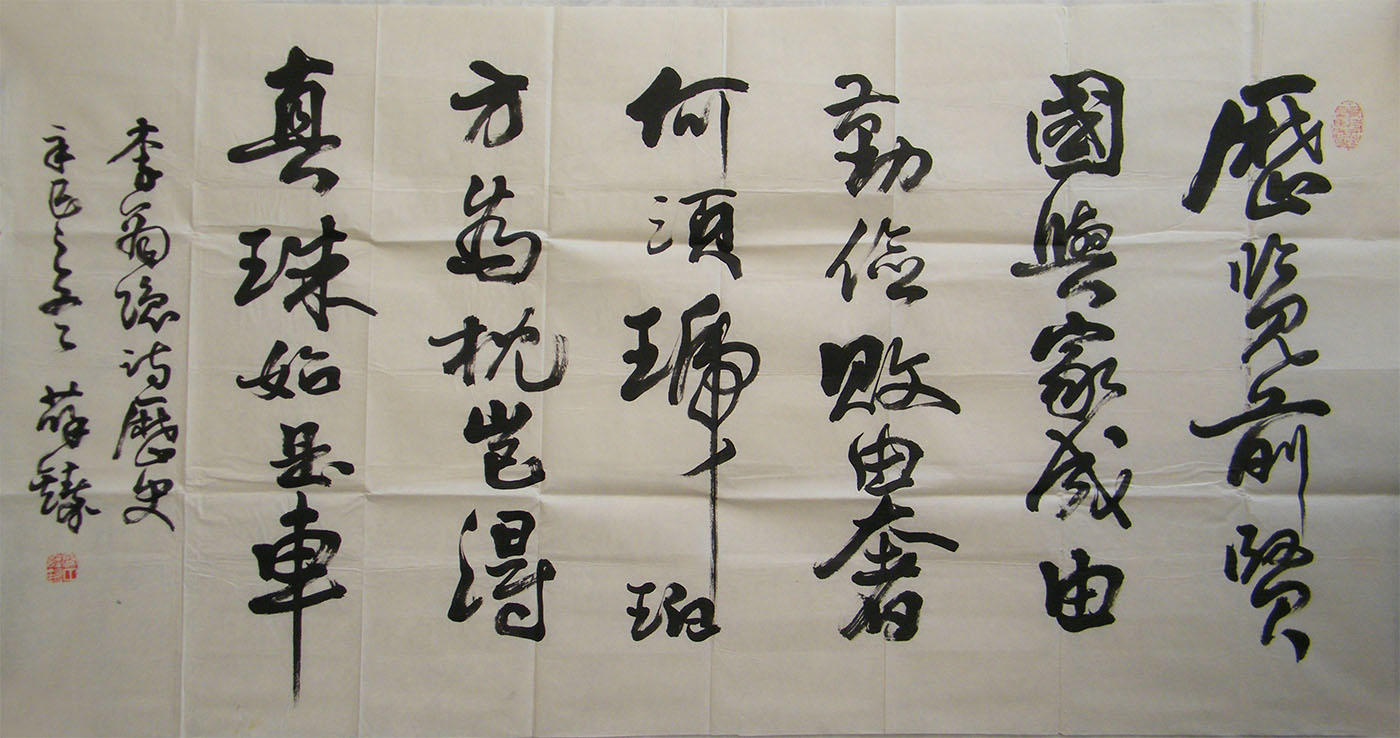 歷览前賢
國與家成由
勤俭敗由奢
何須琥珀
方為枕豈得
真珠始是車
李商隐诗歷史
辛巳之冬 薛